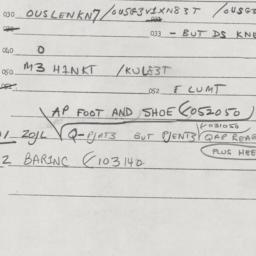 030 OUSLENKN7/OUSG3V1XN83T /OUSG3
033 - BUT DS KNE
040 O
050 M3 H1NKT /KULE3T
052 F LUMT
AP FOOT AND SHOE (052050)
1 ZOJL Q-PJRT3 BUT PJENT3 QAP REA
(031050
PLUS HEE
2 BARINC (103140